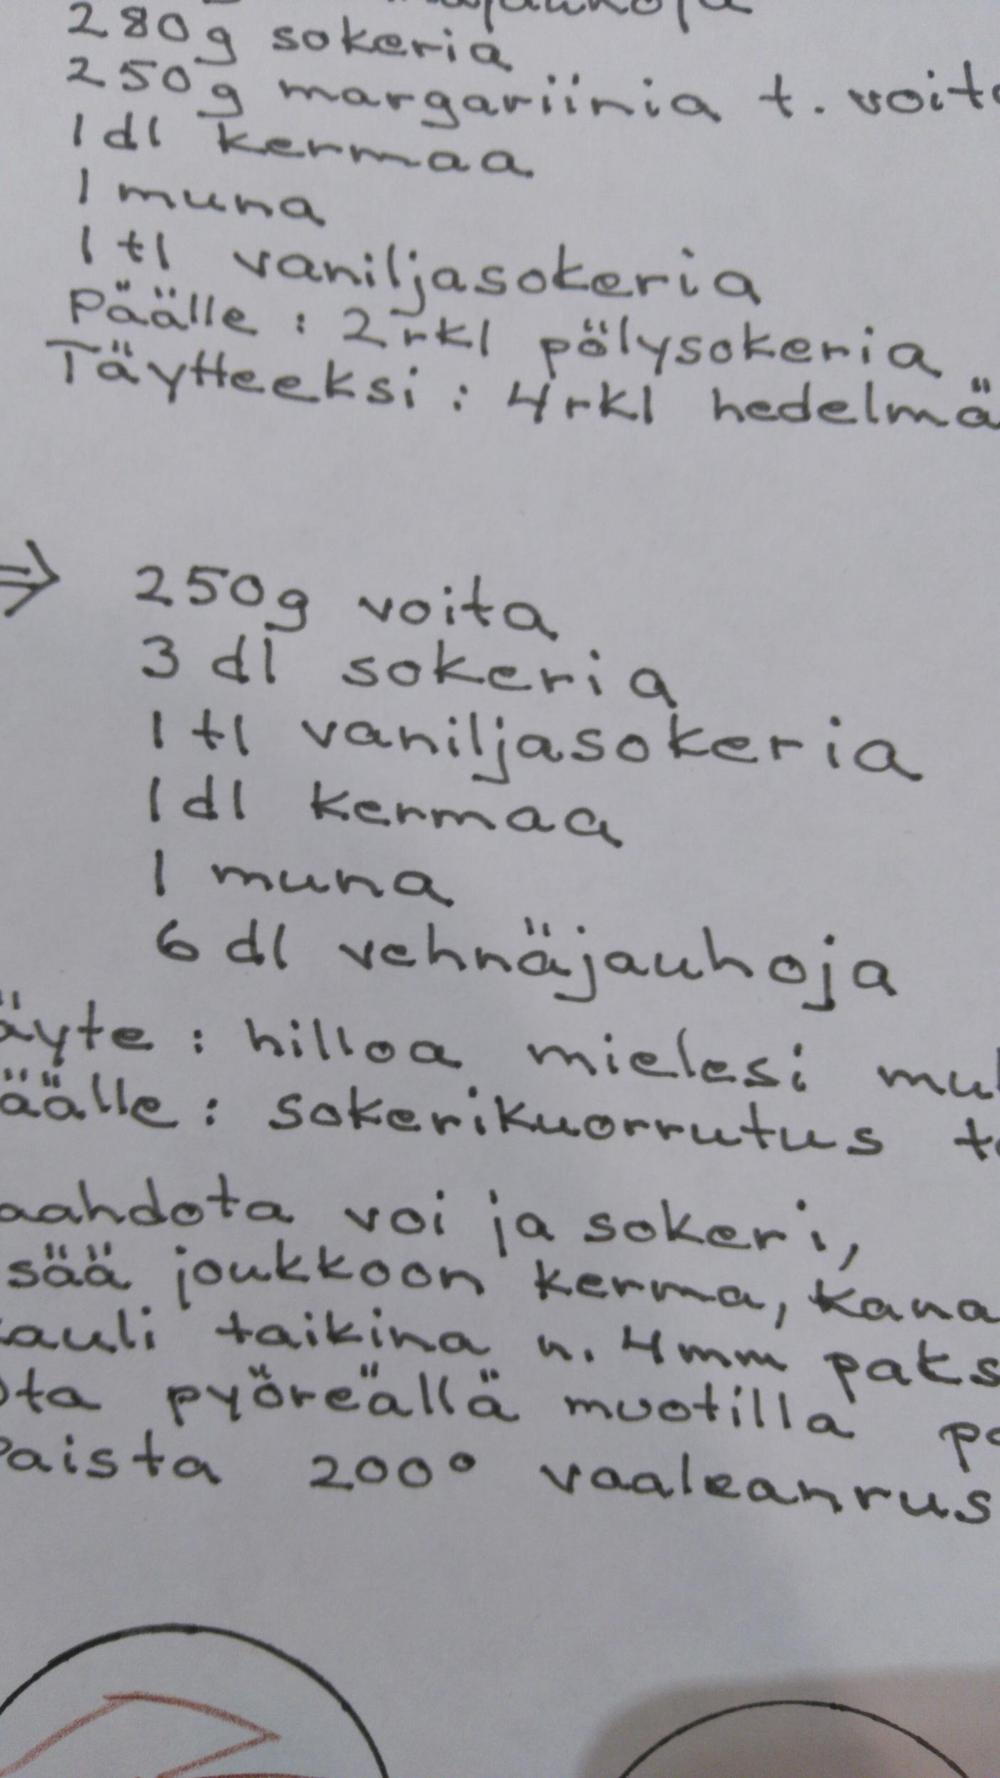 280g sokeria
250g margariinia t. voita
1 dl kermaa
1 muna
1 tl vaniljasokeria
Päälle : 2 rkl pölysokeria
Täytteeksi : 4 rkl hedelmä
⇒ 250g voita
3 dl sokeria
1 tl vaniljasokeria
1 dl kermaa
1 muna
6 dl vehnäjauhoja
äyte : hilloa mielesi muk
äälle : sokerikuorrutus
aahdota voi ja sokeri,
sää joukkoon kerma, kana
auli taikina n. 4mm paks
ota pyöreällä muotilla
Paista 200° vaaleanrus